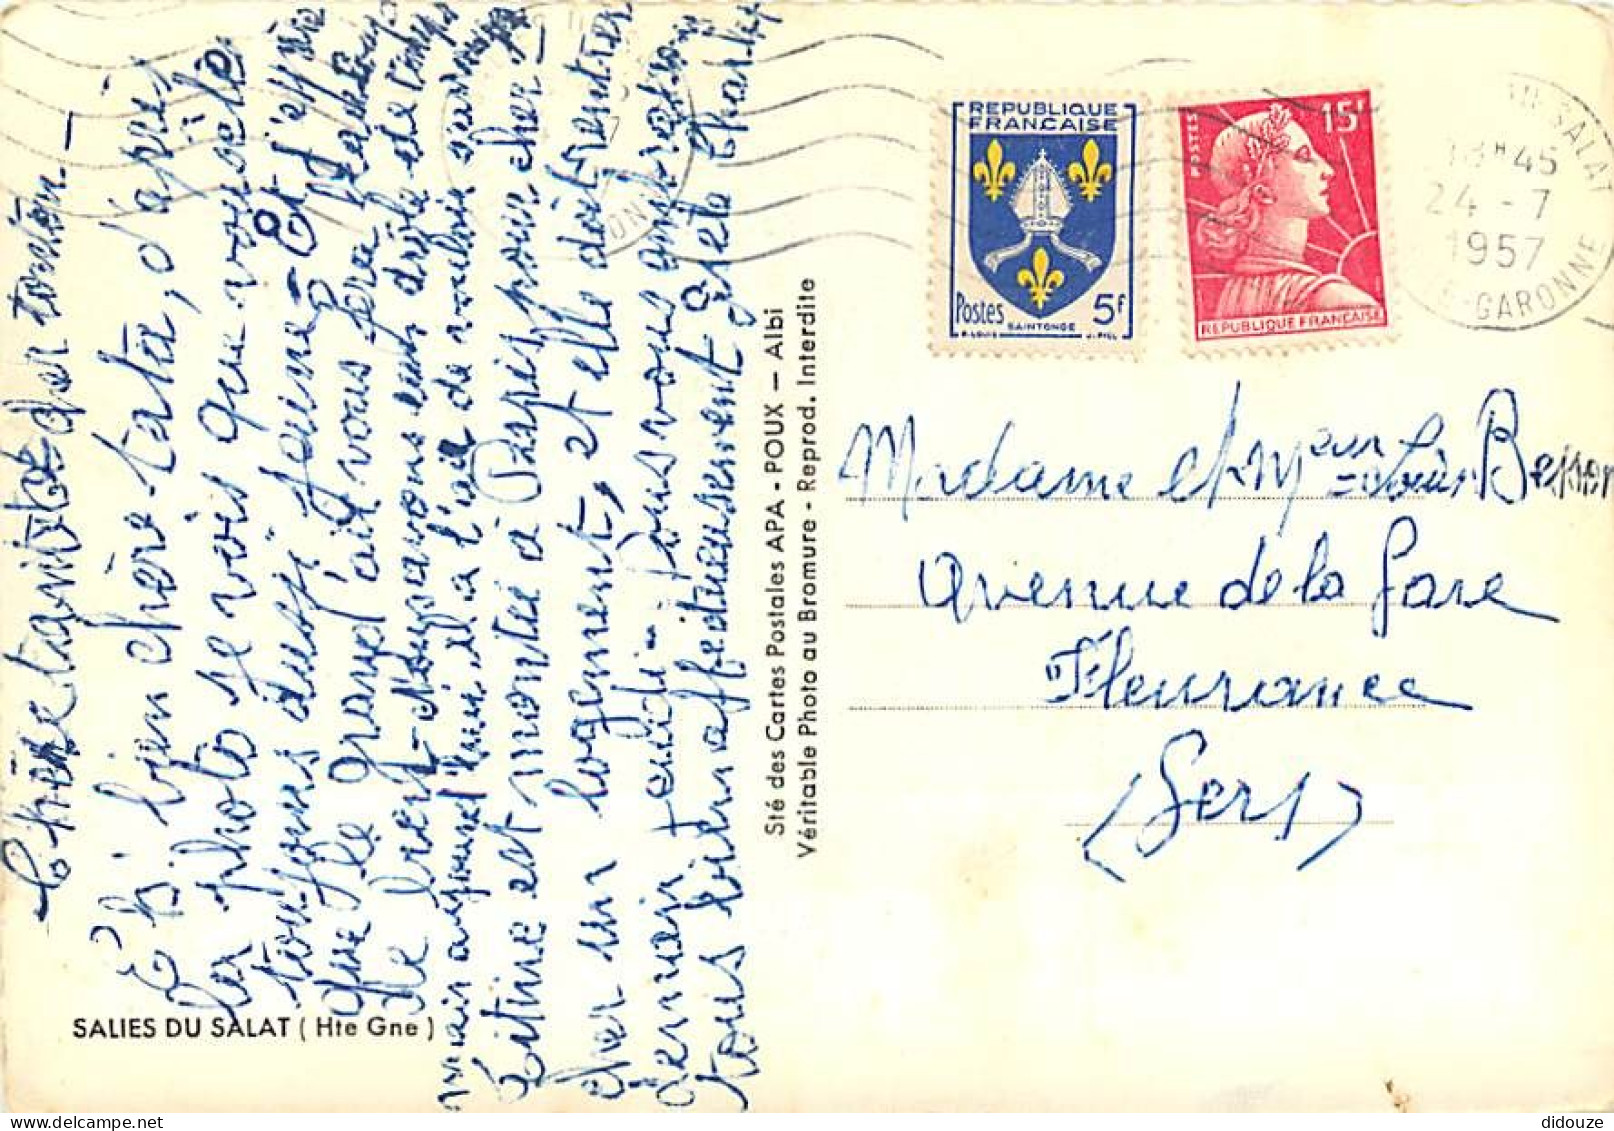 Chère tantine et cher tonton -
Eh bien chère tata, d'après
la photo je vois que vous êtes
toujours aussi jeune - Et j'espère
que le grand air vous fera beaucoup
de bien - Nous avons eu drôle de temps
mais aujourd'hui il a l'air de vouloir
Titine est montée à Paris pour cher-
cher un logement, et elle doit rentrer
demain jeudi - Nous vous embrassons
tous bien affectueusement
SALIES DU SALAT ( Hte Gne )
Sté des Cartes Postales APA - POUX - Albi
Véritable Photo au Bromure - Reprod. Interdite
REPUBLIQUE
FRANCAISE
Postes 5f
SAINTONGE
POSTES
15f
REPUBLIQUE FRANÇAISE
SALAT
18H45
24 - 7
1957
GARONNE
Madame et Mr
Avenue de la Gare
Fleurance
(Gers)
didouze